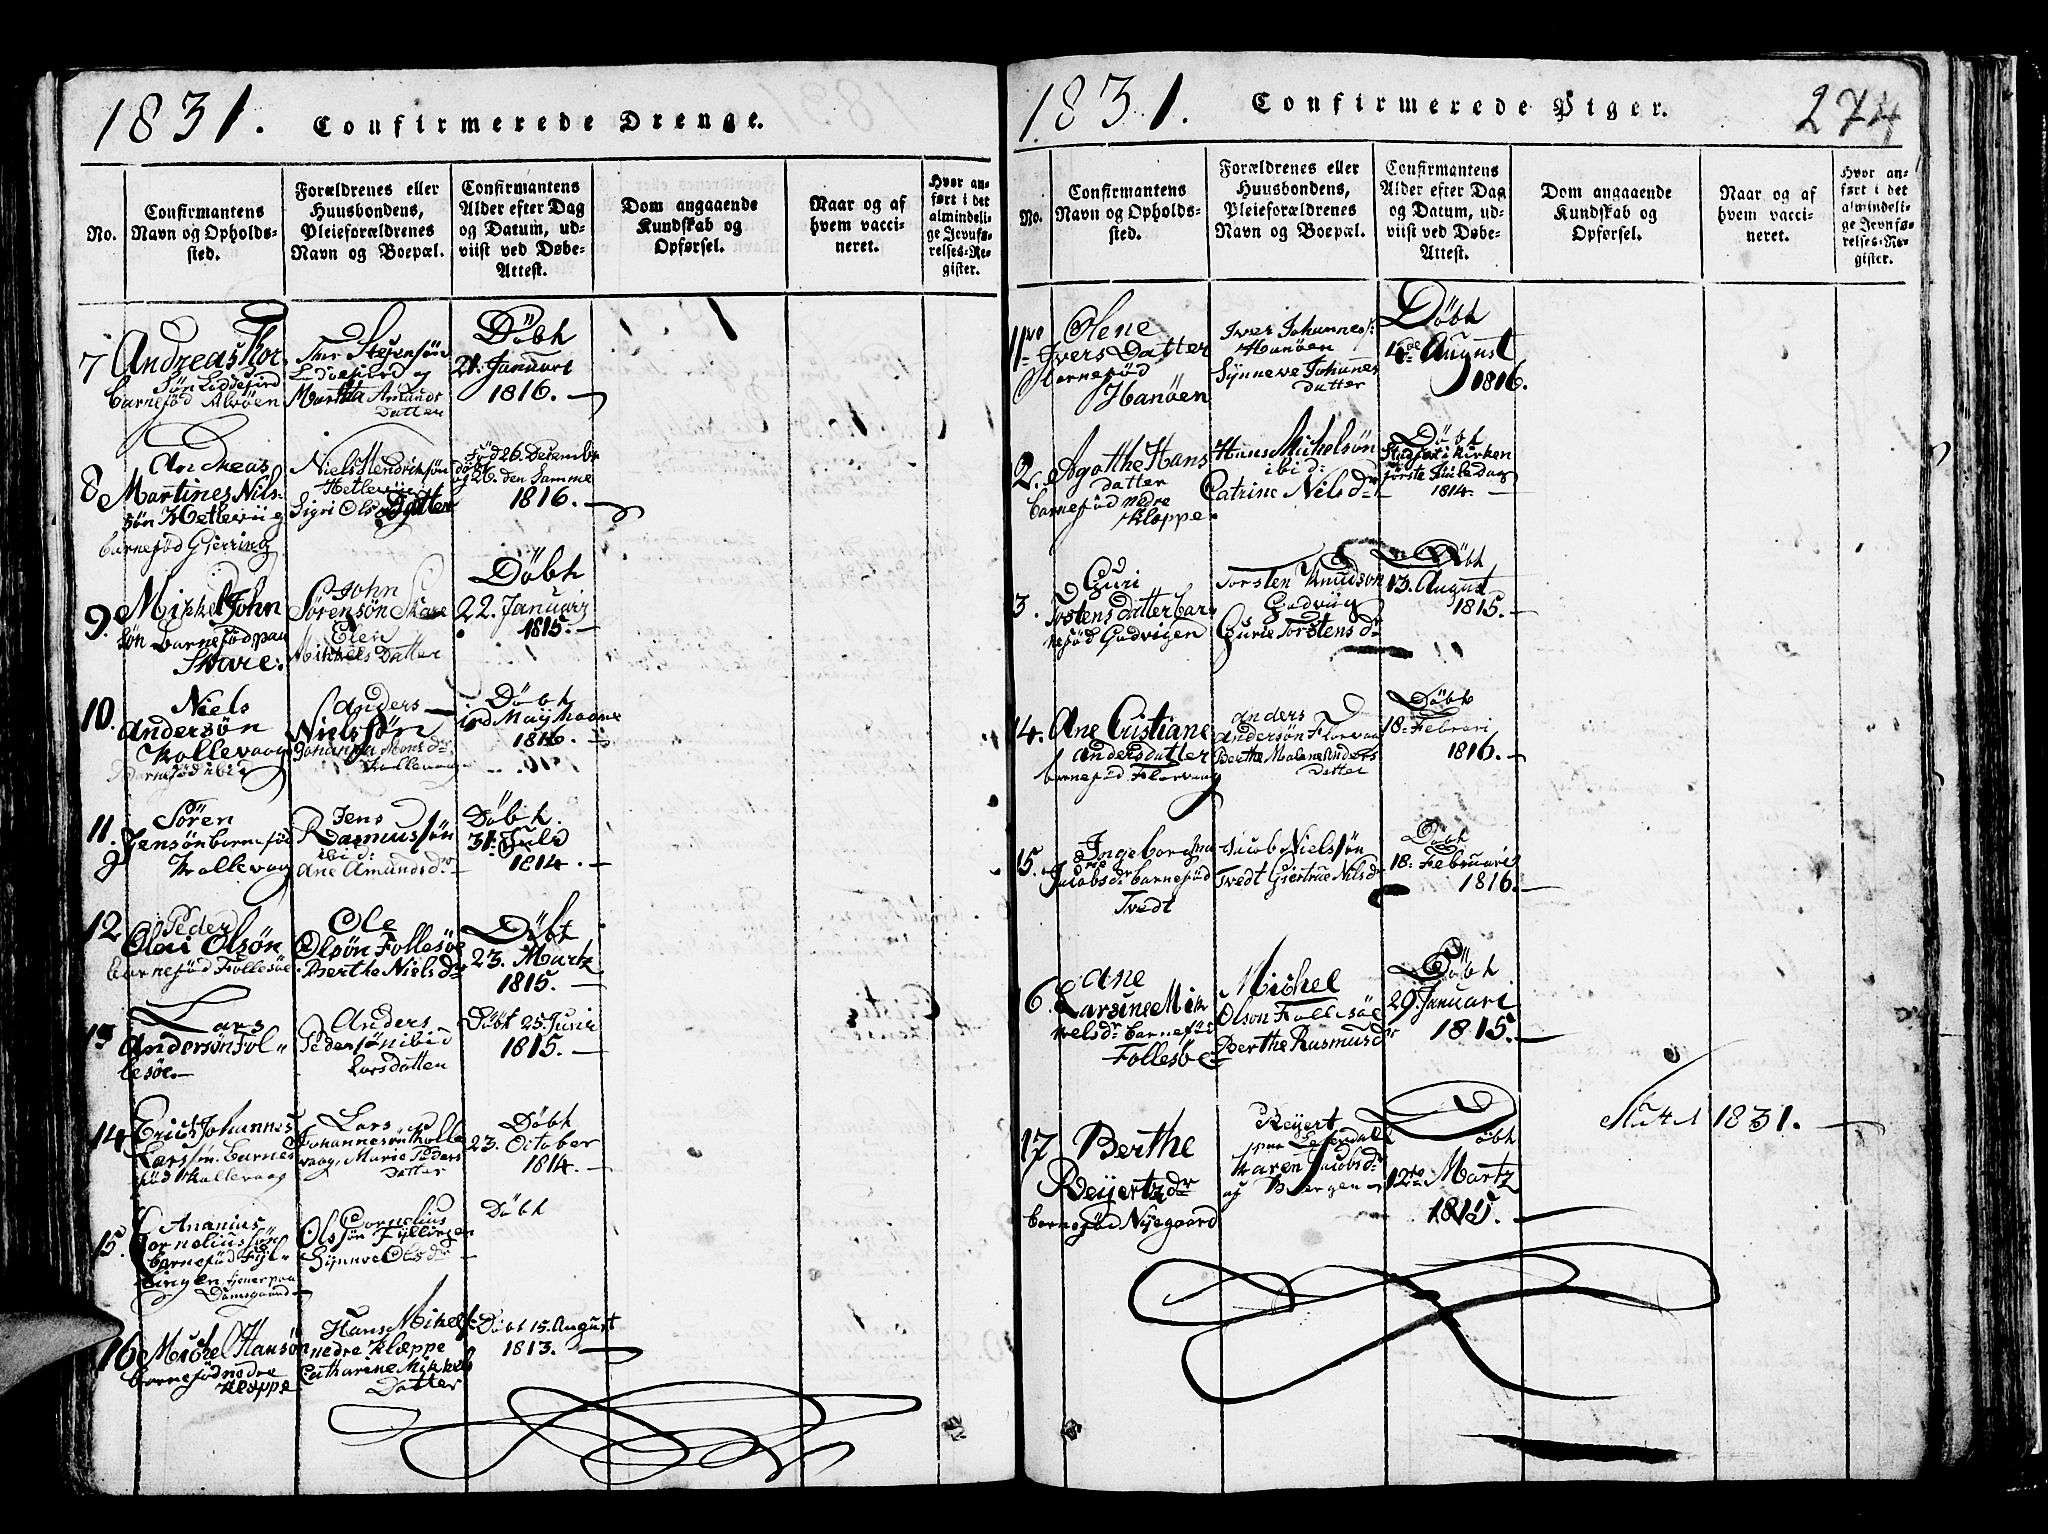 1831. Confirmerede Drenge.
No.
Confirmantens
Navn og Opholds-
sted.
Forældrenes eller
Huusbondens,
Pleieforældrenes
Navn og Boepæl.
Confirmantens
Alder efter Dag
og Datum, ud-
viist ved Døbe-
Attest.
Dom angaaende
Kundskab og
Opførsel.
Naar og af
hvem vacci-
neret.
Hvor an-
ført i det
almindeli-
ge Jevnfø-
relses-Re-
gister.
7
Andreas Thor
barnefød Alvøen
Martha Amunds
Datter
Döbh
21 Januari
1816.
8
Andreas
Martines Nils-
søn Hetleviig
barnefød Gjerring
Niels Hendriksøn
Hetleviig
Sigri Ols Datter
Fød 26. December
døbt
og 26. den Samme
1816.
9.
Mikkel John
søn barnefød paa
Skare.
John
Sørensøn Skare
Elen
Mikkels Datter
Döbh
22. Januari
1815.
10.
Niels
Andersøn
Kollevaag
Barnefød ibid
Anders
Nielssøn
Johanna Mons dr.
Kollevaag
Döbh
1816.
11.
Søren
Jensøn barnefød
Kollevaag
Jens
Rasmussøn
ibid:
Ane Amunds dr
Döbh.
31. Juli
1814.
12
Peder
Oleus Olsøn
barnefød Follesøe
Ole
Olsøn Follesøe
Berthe Niels dr
Döbt
23. Martz
1815.
13
Lars
Andersøn Fol-
lesøe
Anders
Pedersøn ibid
Larsdatter
Döbt 25. Juni
1815.
14
Erick Johannes
Larssøn. Barne
fød Kollevaag
Lars
Johannesøn Kolle
vaag, Marie Peders
Datter
Döbh
23. October
1814.
15.
Ananius
Corneliussøn
barnefød Fyl-
lingen tjener paa
Damsgaard
Cornelius
Olssøn Fyllingen
Synneve Ols dr
Döbh
16
Michel Hansøn
barnefød nedre
Kleppe
Hans Mikels:
nedre Klæppe
Catharine Mikkels
Datter
Döbt 15. August
1813.
1831. Confirmerede Piger. 274
No.
Confirmantens
Navn og Opholds-
sted.
Forældrenes eller
Huusbondens,
Pleieforældrenes
Navn og Boepæl.
Confirmantens
Alder efter Dag
og Datum, ud-
viist ved Døbe-
Attest.
Dom angaaende
Kundskab og
Opførsel.
Naar og af
hvem vacci-
neret.
Hvor an-
ført i det
almindeli-
ge Jevnfø-
relses-Re-
gister.
Olene
Ivers Datter
barnefød
Hanøen
Iver Johannes:
Hanøen
Synneve Johannes
Datter
Döbh
4de August
1816.
2.
Agatthe Hans
datter
barnefød nedre
Klæppe
Hans Michelsøn
ibid:
Catrine Niels dr
Döbt
Stadfæst i Kirken
første Jule Dag
1814.
3.
Guri
Tostens datter bar
nefød Gudvigen
Torsten Knudson
Gudviig
Gurie Torstens dr
Döbt
13. August
1815.
14.
Ane Cristiane
Andersdatter
barnefød Florvaag
Anders
Andersøn Florvaag
Berthe Malene Anders
Datter
Döbt
18. Februari
1816.
15.
Ingeborg Ma
rie
Jacobs dr barnefød
Tvedt
Jacob Nielssøn
Tvedt Giertrue Nils dr
Döbt
18. Februari
1816.
16
Ane
Larsine Mik
kels dr barnefød
Follesøe
Michel
Olson Follesøe
Berthe Rasmus dr
Döbh
29. Januari
1815.
17
Berthe
Reijertz dr
barnefød Nyegaard
Reyert
paa
Karen Jacobs dr
af Bergen
Döbh
12te Martz
1815.
1831.